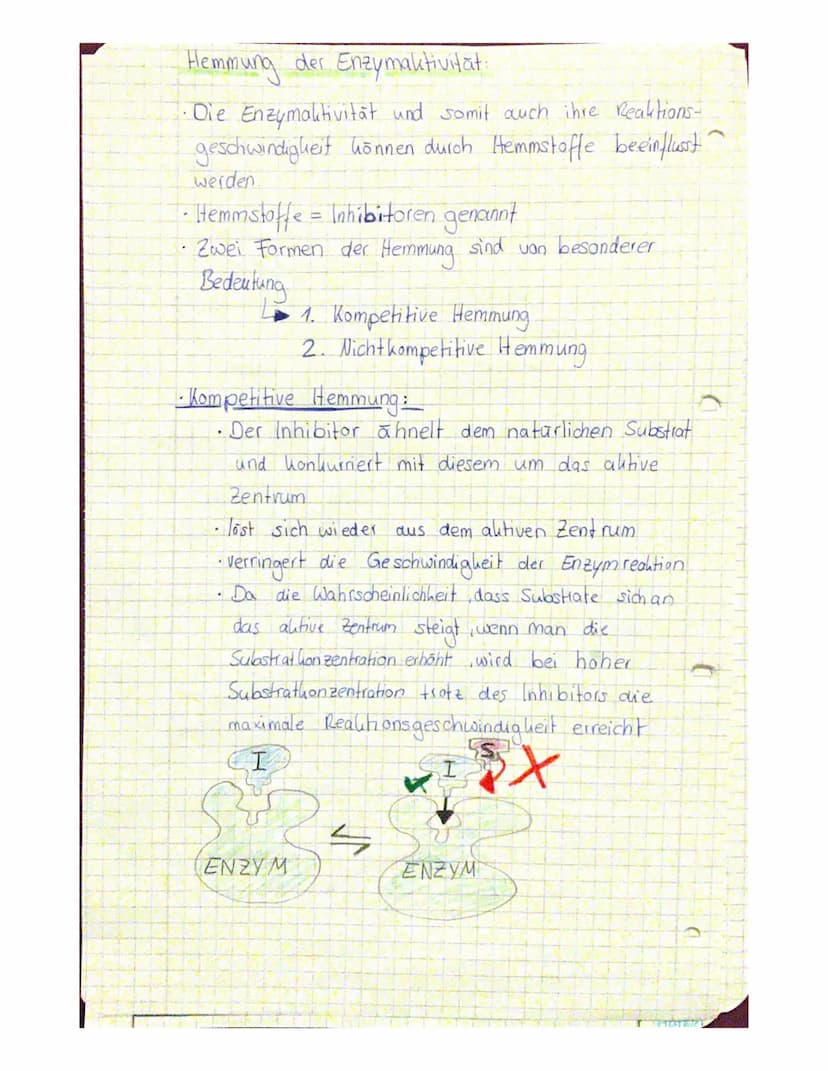 Hemmung der Enzymaktivität:
· Die Enzymaktivität und somit auch ihre Reaktions-
geschwindigkeit können durch Hemmstoffe beeinflusst
werden
· Hemmstoffe = Inhibitoren genannt
· Zwei Formen der Hemmung sind von besonderer
Bedeutung
1. Kompetitive Hemmung
2. Nichtkompetitive Hemmung
· Kompetitive Hemmung:
· Der Inhibitor ähnelt dem natürlichen Substrat
und konkurriert mit diesem um das aktive
Zentrum
· löst sich wieder aus dem aktiven Zentrum
· verringert die Geschwindigkeit der Enzymreaktion
· Da die Wahrscheinlichkeit, dass Substrate sich an
das aktive Zentrum steigt, wenn man die
Substratkonzentration erhöht, wird bei hoher
Substratkonzentration trotz des Inhibitors die
maximale Reaktionsgeschwindigkeit erreicht
I
S
I
ENZYM
ENZYM